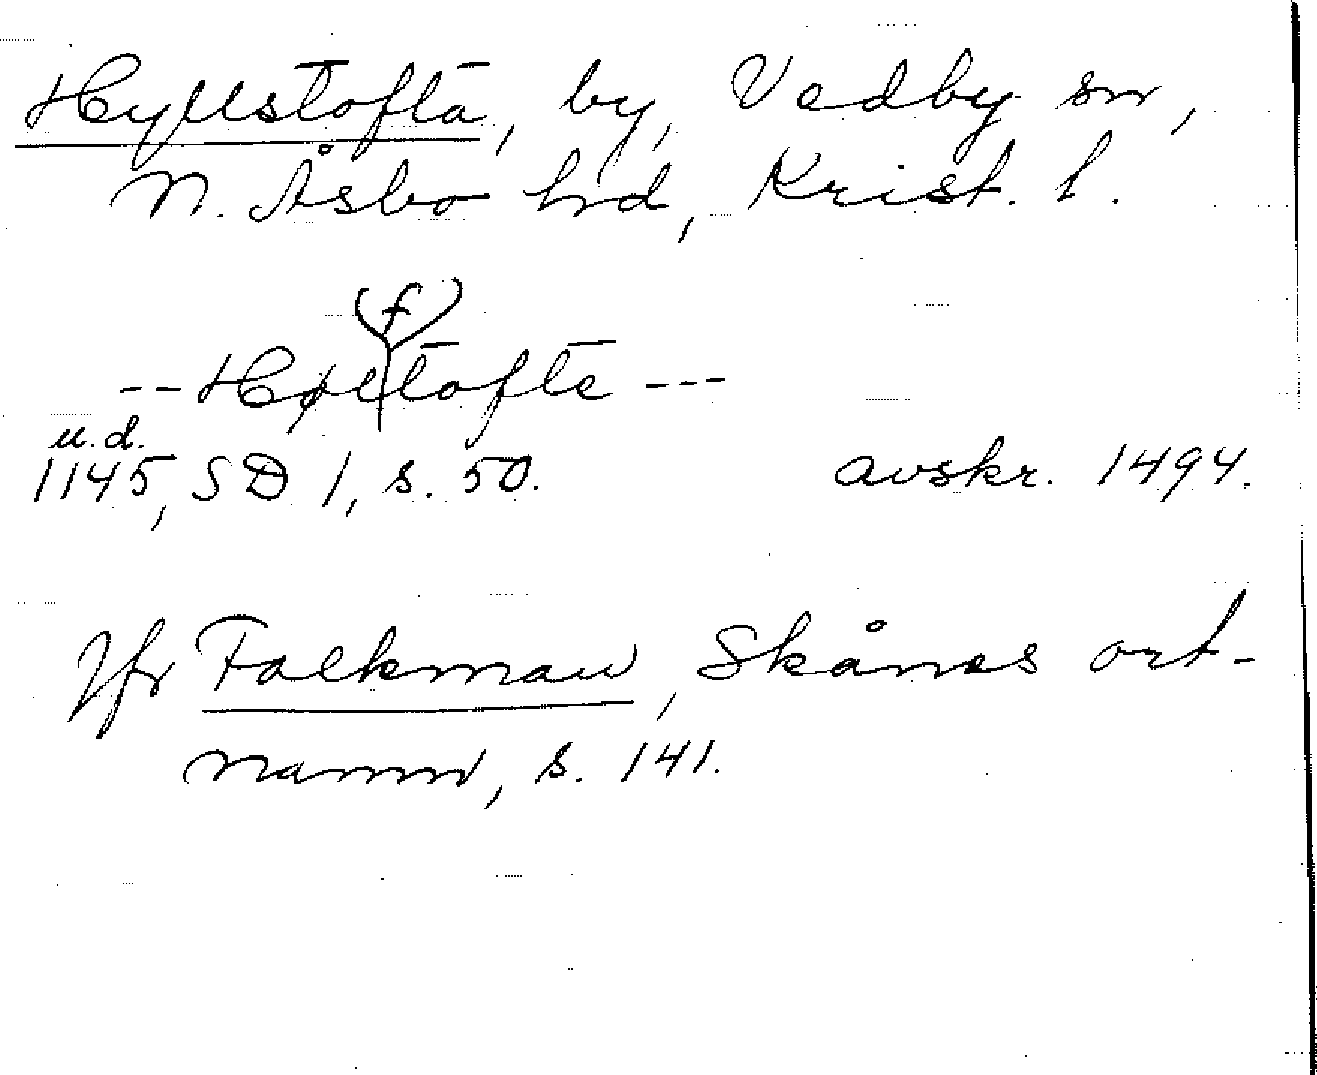 Hyllstofta, by, Vedby sn,
N. Åsbo hd, Krist. l.
(f)
--Høltofte---
u.d.
1145, SD 1, s. 50. avskr. 1494.
Jfr Falkman, Skånes ort-
namn, s. 141.